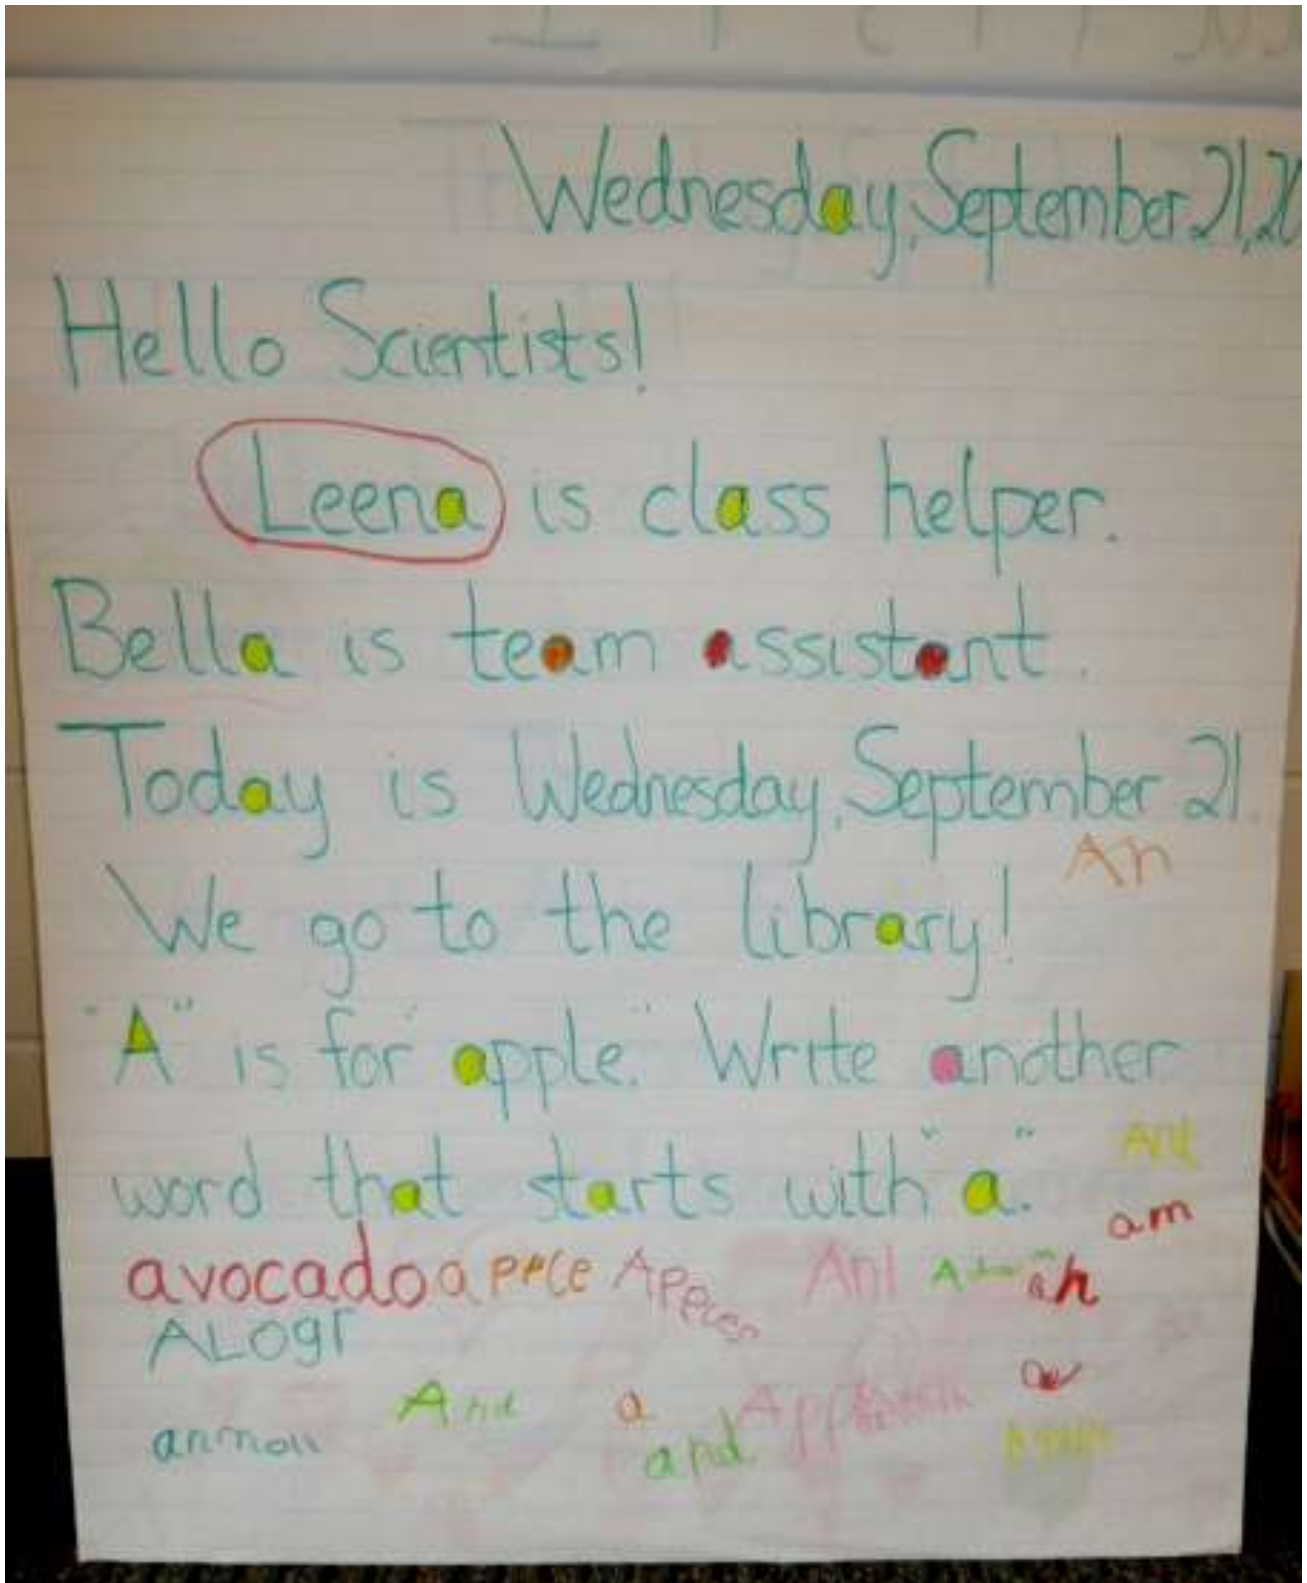 Wednesday, September 21, 20
Hello Scientists!
Leena is class helper.
Bella is team assistant.
Today is Wednesday, September 21.
An
We go to the library!
"A" is for "apple." Write another
word that starts with "a."
Ant
am
avocado appce Apecer Ant an
ALOgr
And a aw
anmall and